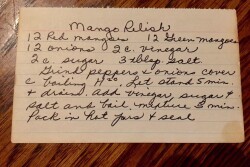 Mango Relish
12 Red mangoes 12 Green mangoes
12 onions 2 c. vinegar
2 c. sugar 3 tblsp salt
Grind peppers & onions cover
c boiling H2O Let stand 5 min
& drain. add vinegar, sugar &
salt and boil mixture 5 min
Pack in hot jars & seal